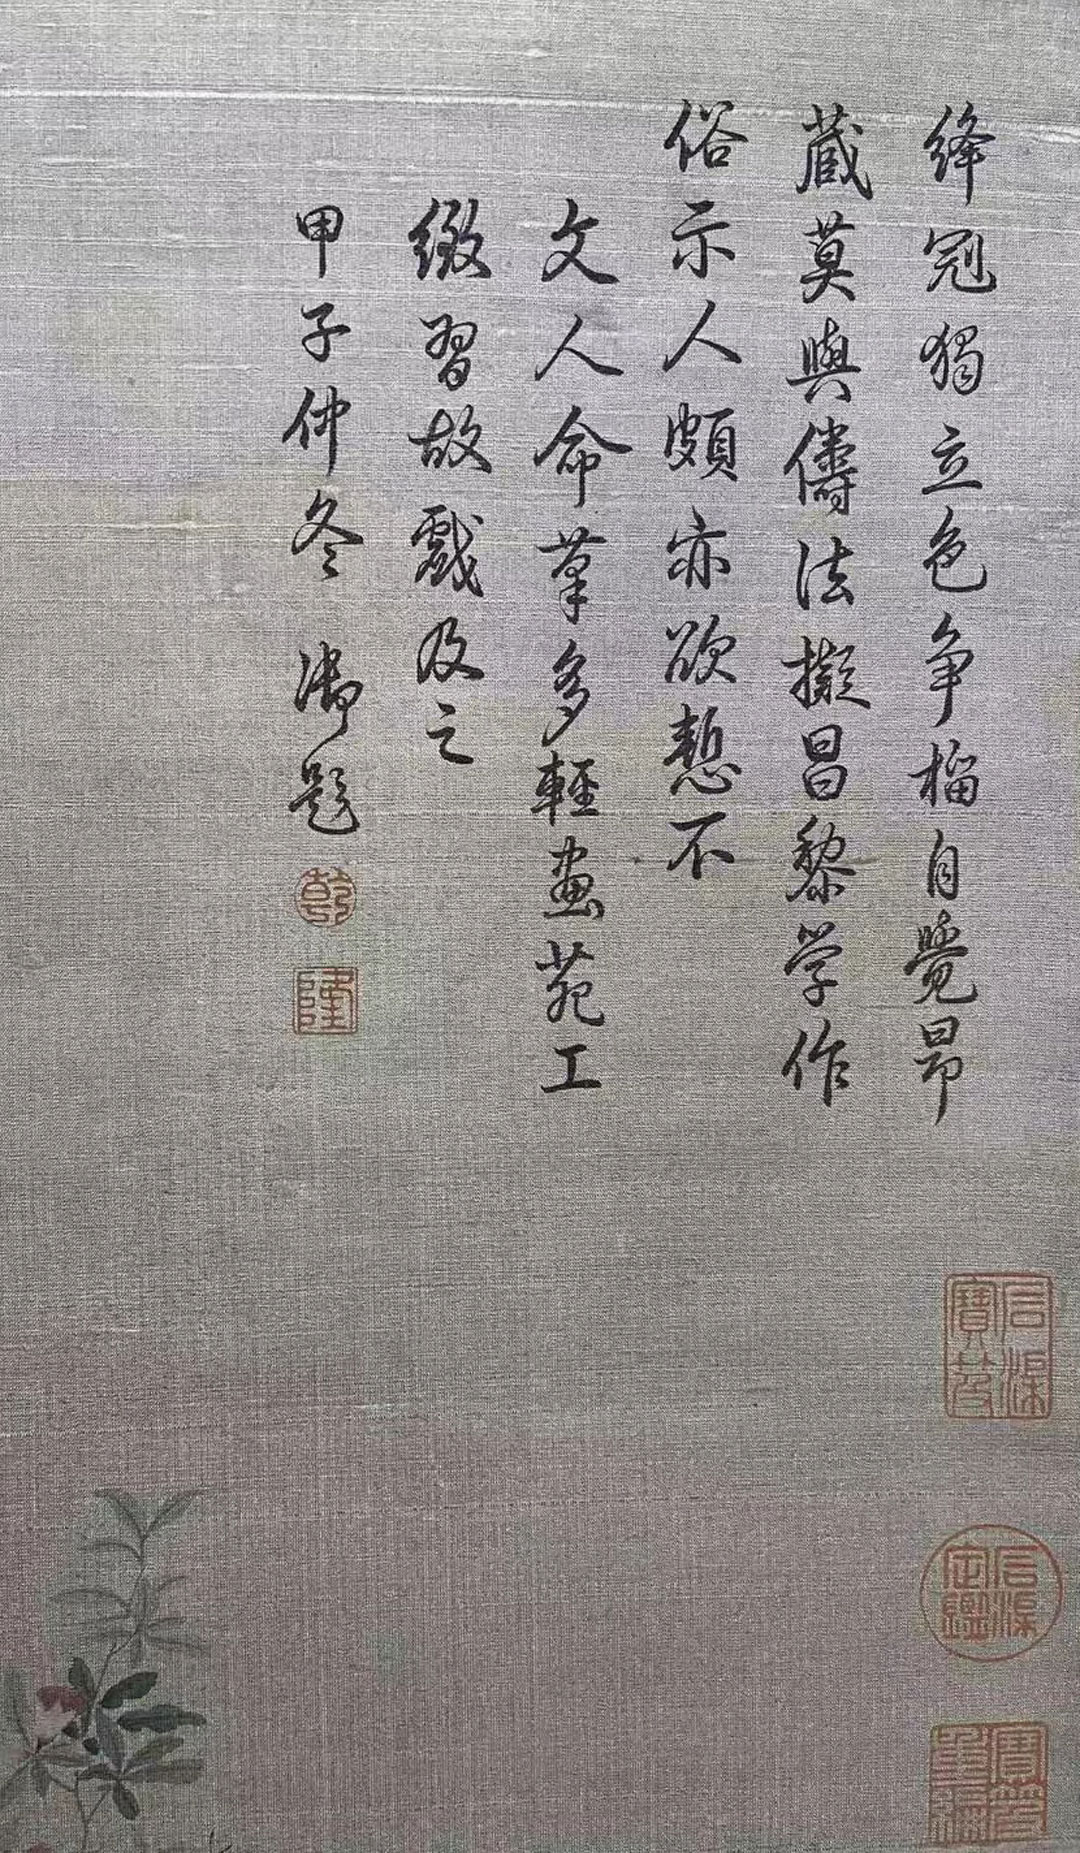 绛冠獨立色争榴自覺昂
蔵莫與儔法擬昌黎学作
俗示人頗亦欲慙不
文人命筆多輕畫苑工
緻習故戲及之
甲子仲冬 御題
乾
隆
石渠
寶笈
石渠
定鑑
寶笈
重編